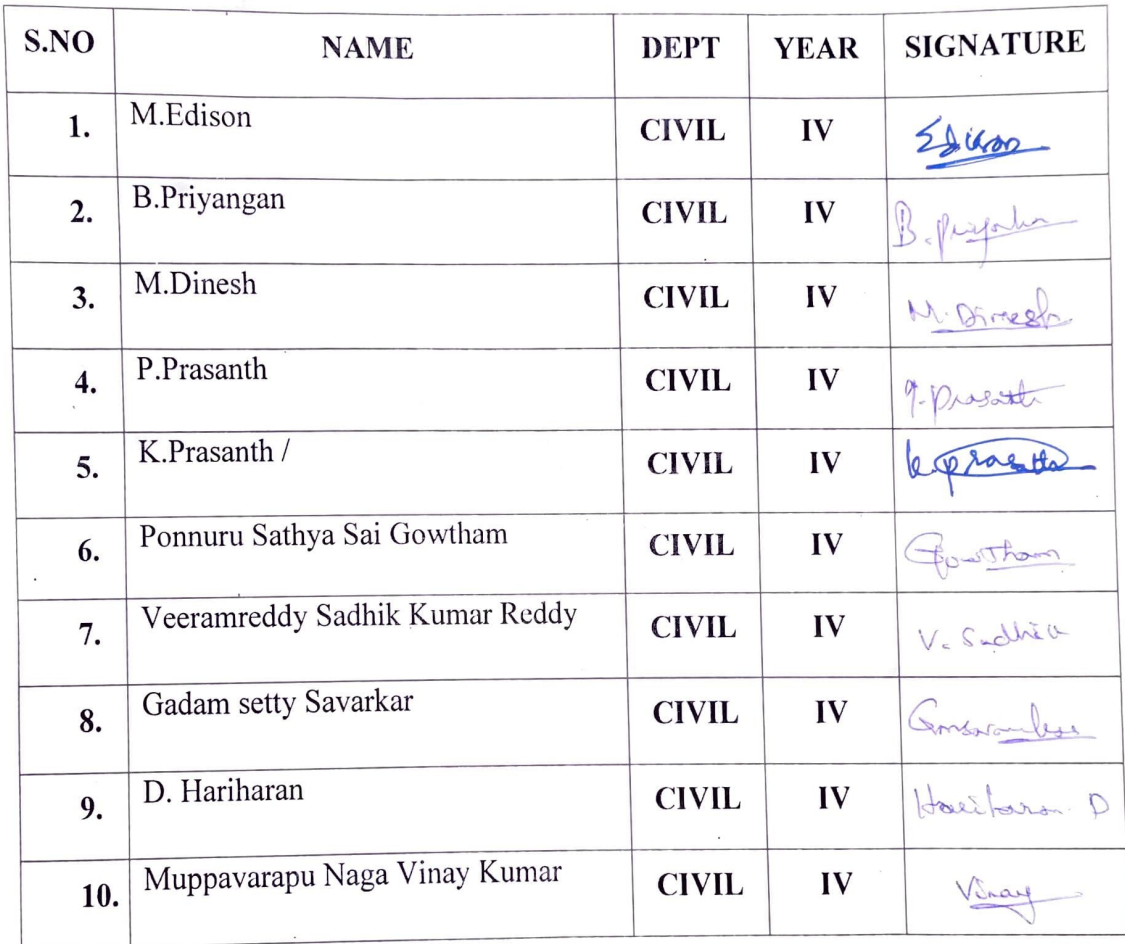 S.NO NAME DEPT YEAR SIGNATURE
1. M.Edison CIVIL IV Edison
2. B.Priyangan CIVIL IV B.
3. M.Dinesh CIVIL IV M.Dinesh
4. P.Prasanth CIVIL IV P.Prasanth
5. K.Prasanth / CIVIL IV K.Prasanth
6. Ponnuru Sathya Sai Gowtham CIVIL IV Gowtham
7. Veeramreddy Sadhik Kumar Reddy CIVIL IV V.
8. Gadam setty Savarkar CIVIL IV
9. D. Hariharan CIVIL IV Hariharan. D
10. Muppavarapu Naga Vinay Kumar CIVIL IV Vinay